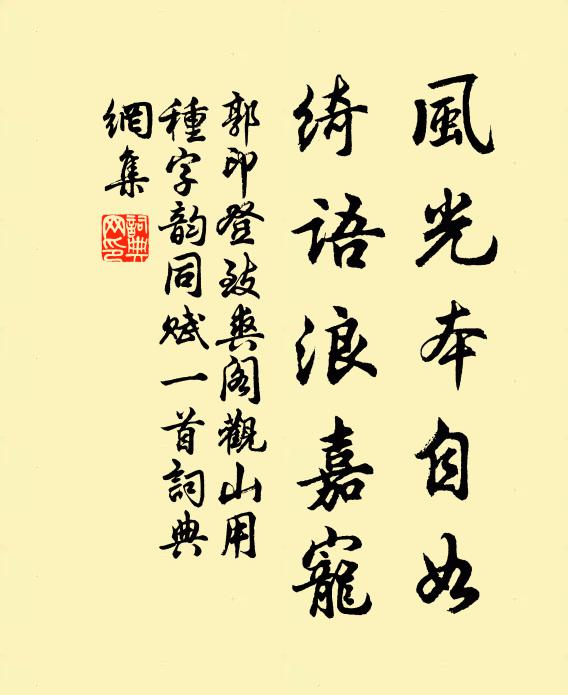 風光本自如
綺語浪嘉寵
郭印登致爽閣觀山用
種字韵同赋一首詞典
網集
詞典網印